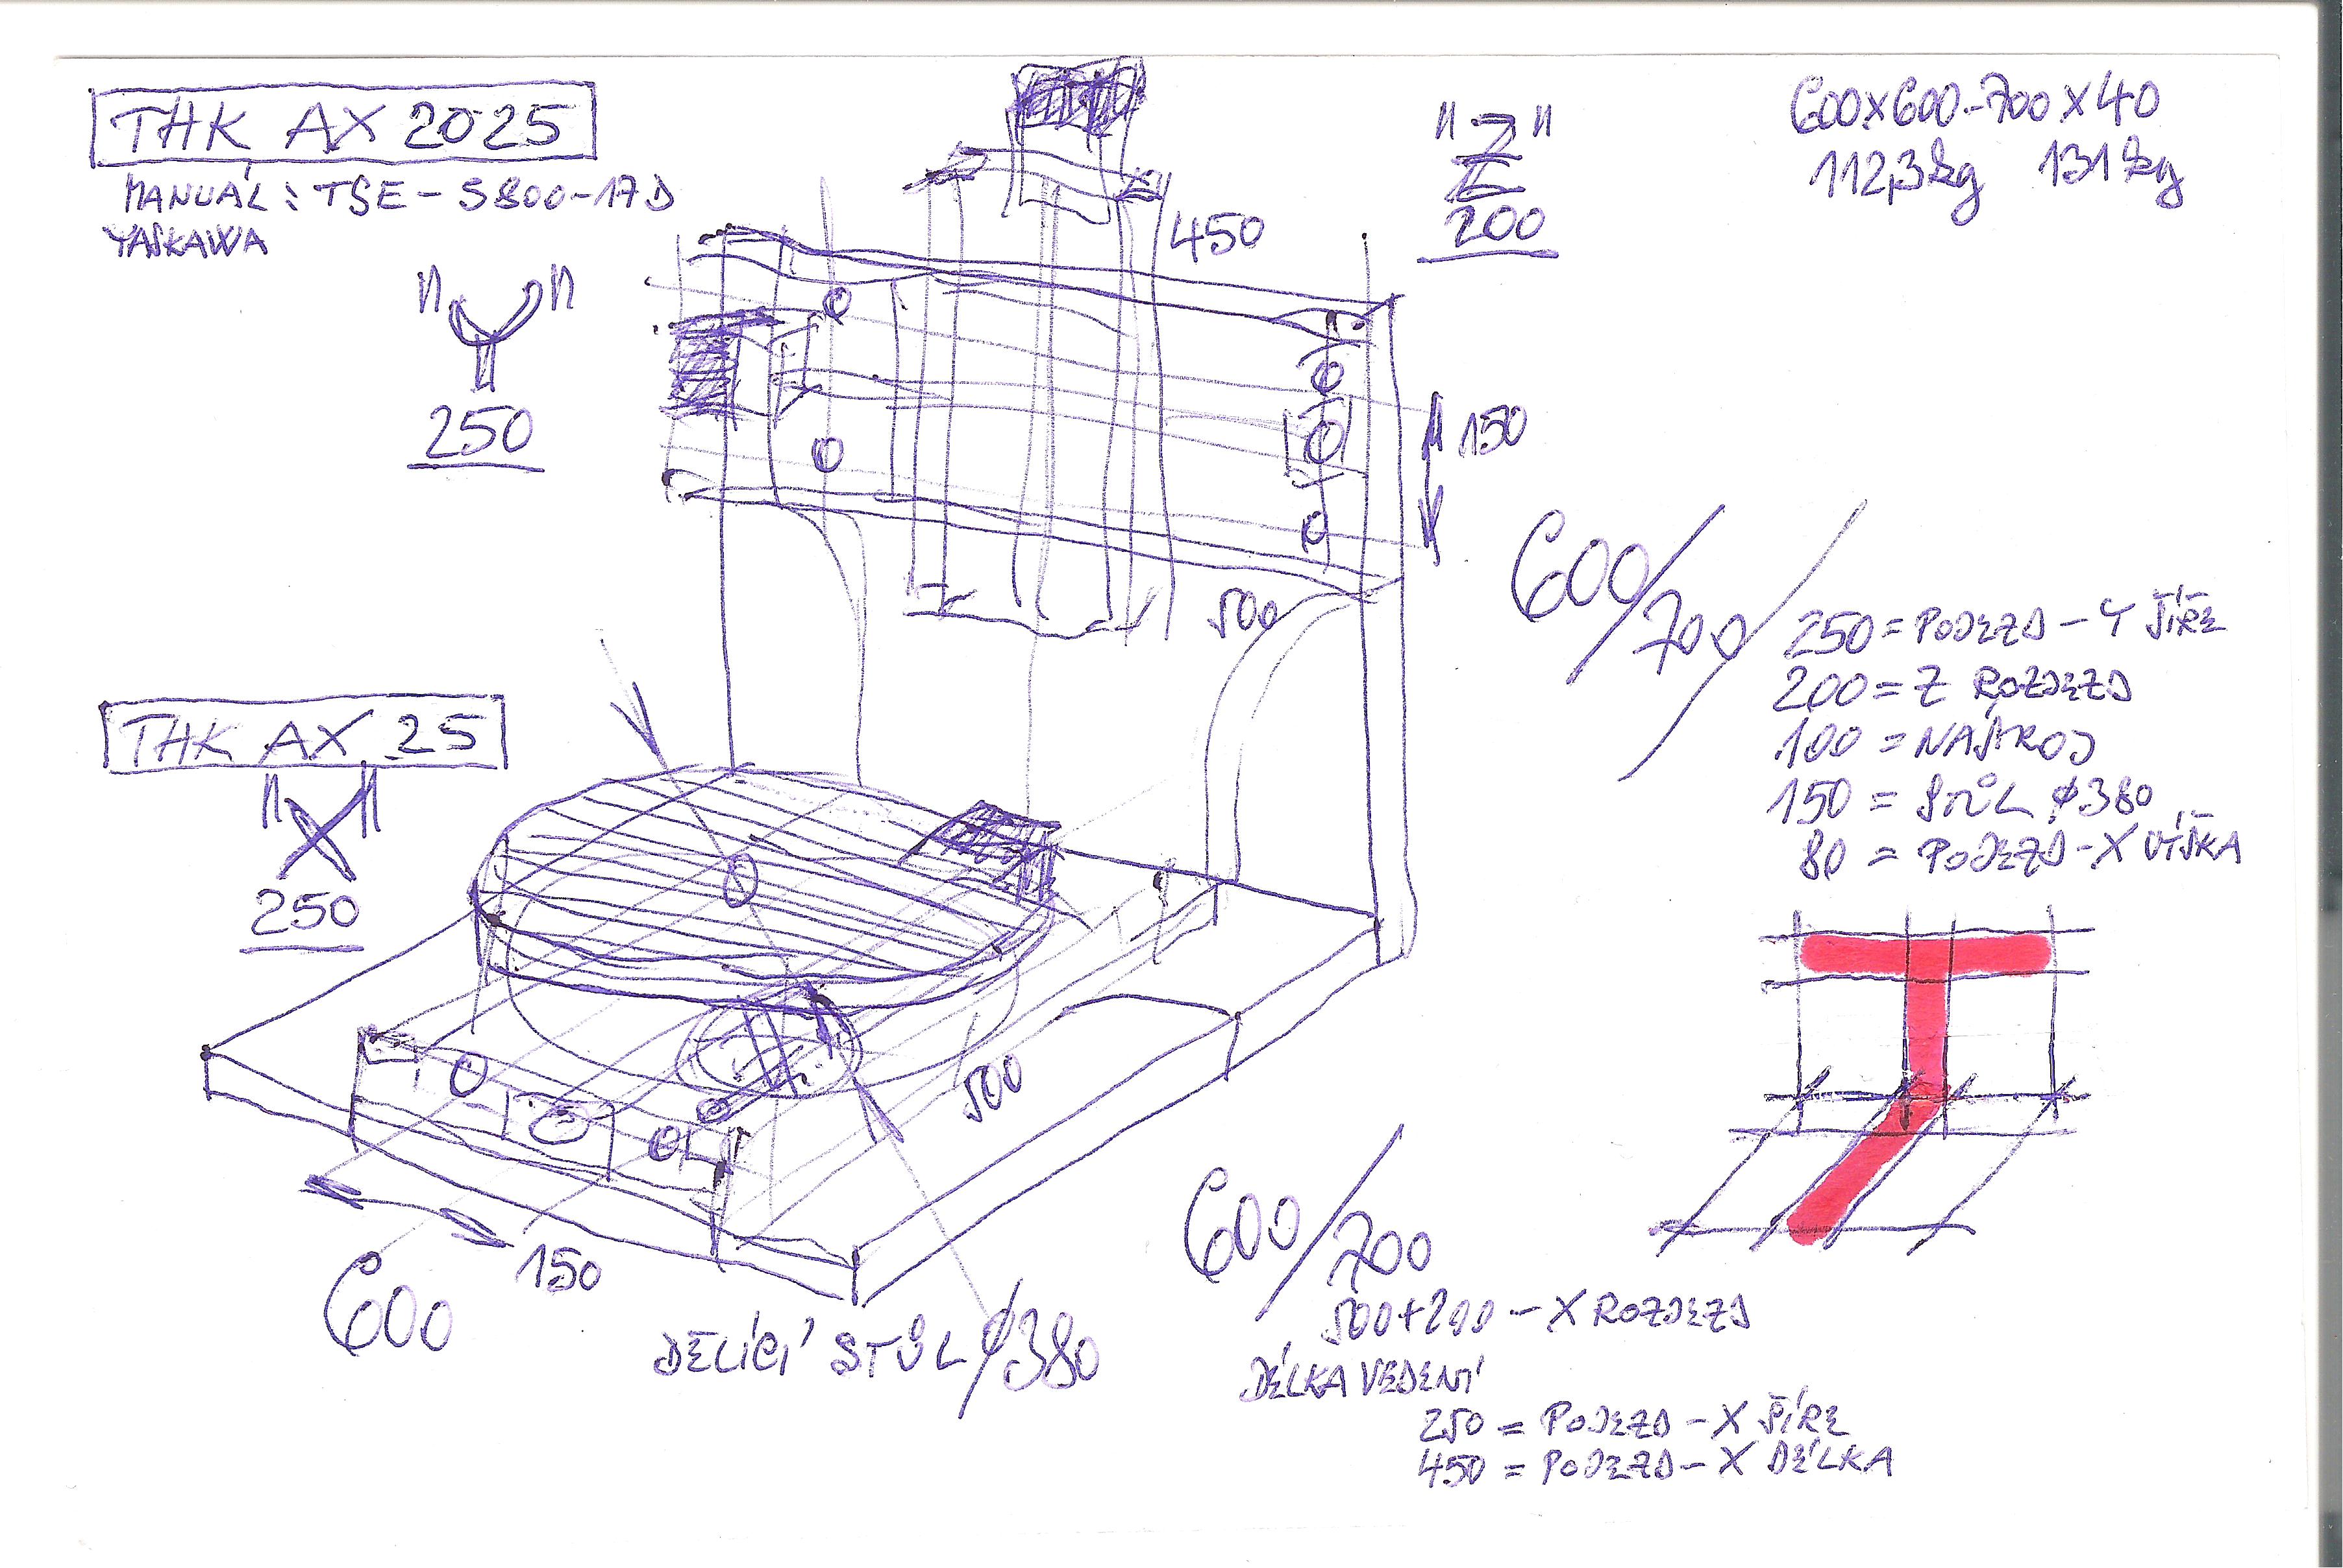 THK AX 2025
MANUÁL: TSE-S800-17D
YASKAWA
"Z"
200
600x600-700x40
112,3kg 131kg
450
"Y"
250
150
500
600/700/
250 = POJEZD - Y ŠÍŘE
200 = Z ROZJEZD
100 = NÁSTROJ
150 = STŮL ø380
80 = POJEZD - X VÝŠKA
THK AX 25
"X"
250
500
150
600
DĚLÍCÍ STŮL ø380
600/700
500+200 - X ROZJEZD
DÉLKA VEDENÍ
250 = POJEZD - X ŠÍŘE
450 = POJEZD - X DÉLKA